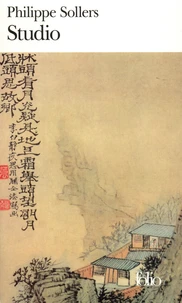 Philippe Sollers
Studio
牀頭看月光疑是地上霜舉頭望明月
低頭思故鄉
folio